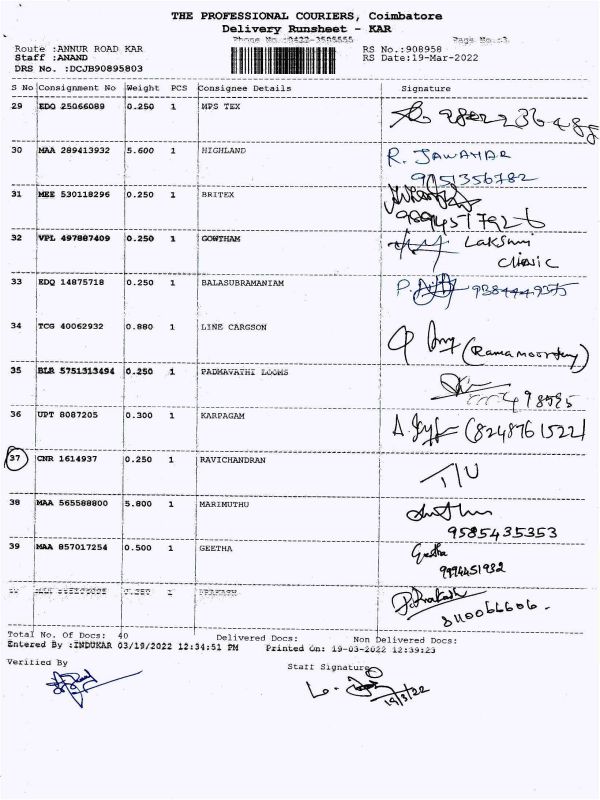 THE PROFESSIONAL COURIERS, Coimbatore
Delivery Runsheet - KAR
Phone No.:0422-3505555 Page No.:3
Route :ANNUR ROAD KAR RS No.:908958
Staff :ANAND RS Date:19-Mar-2022
DRS No. :DCJB90895803
S No Consignment No Weight PCS Consignee Details Signature
29 EDO 25066089 0.250 1 MPS TEX
30 MAA 289413932 5.600 1 HIGHLAND R. JAWAHAR
9751356782
31 MEE 530118296 0.250 1 BRITEX
9894517926
32 VPL 497887409 0.250 1 GOWTHAM Lakshmi
clinic
33 EDQ 14875718 0.250 1 BALASUBRAMANIAM
34 TCG 40062932 0.880 1 LINE CARGSON (Ramamoorthy)
35 BLR 5751313494 0.250 1 PADMAVATHI LOOMS
36 UPT 8087205 0.300 1 KARPAGAM (8248761522)
37 CNR 1614937 0.250 1 RAVICHANDRAN T/U
38 MAA 565588800 5.800 1 MARIMUTHU
9585435353
39 MAA 857017254 0.500 1 GEETHA Geetha
9994451932
0.250 1 PRAKASH P. Prakash
8110066606.
Total No. Of Docs: 40 Delivered Docs: Non Delivered Docs:
Entered By :INDUKAR 03/19/2022 12:34:51 PM Printed On: 19-03-2022 12:39:23
Verified By Staff Signature
19/3/22